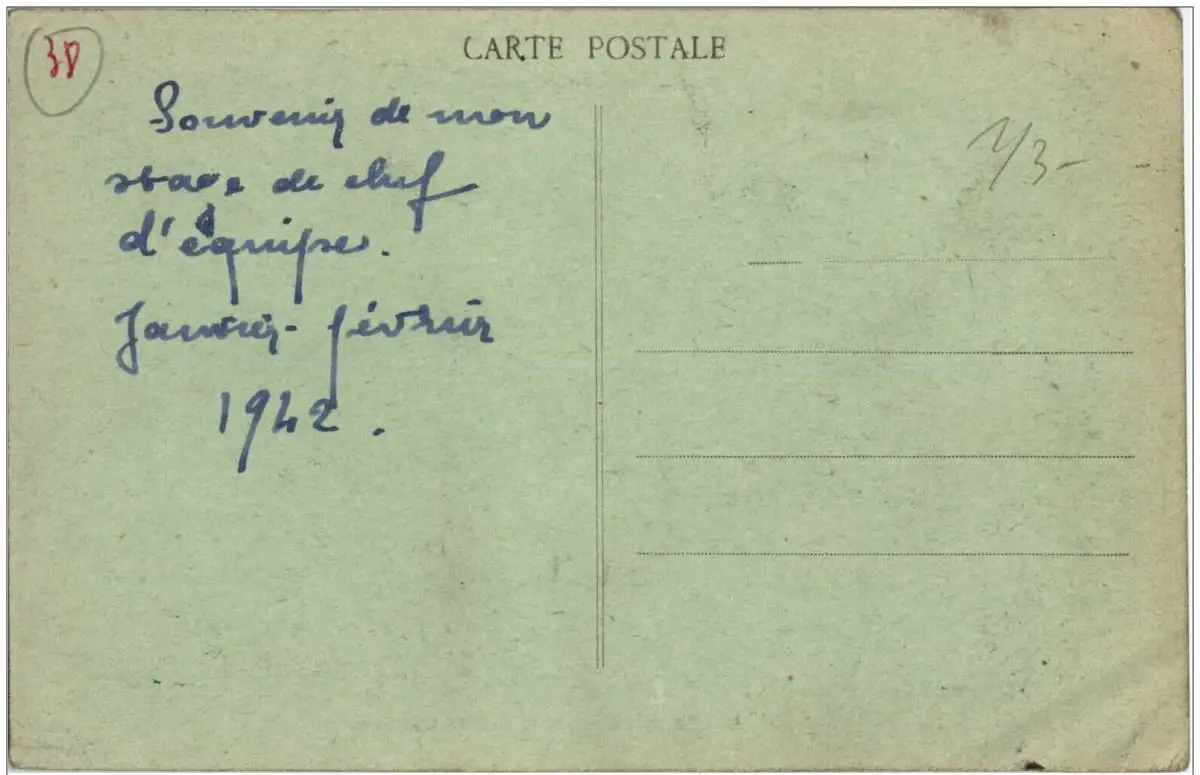 38
CARTE POSTALE
Souvenir de mon
stage de chef
d'équipe.
Janvier - février
1942.